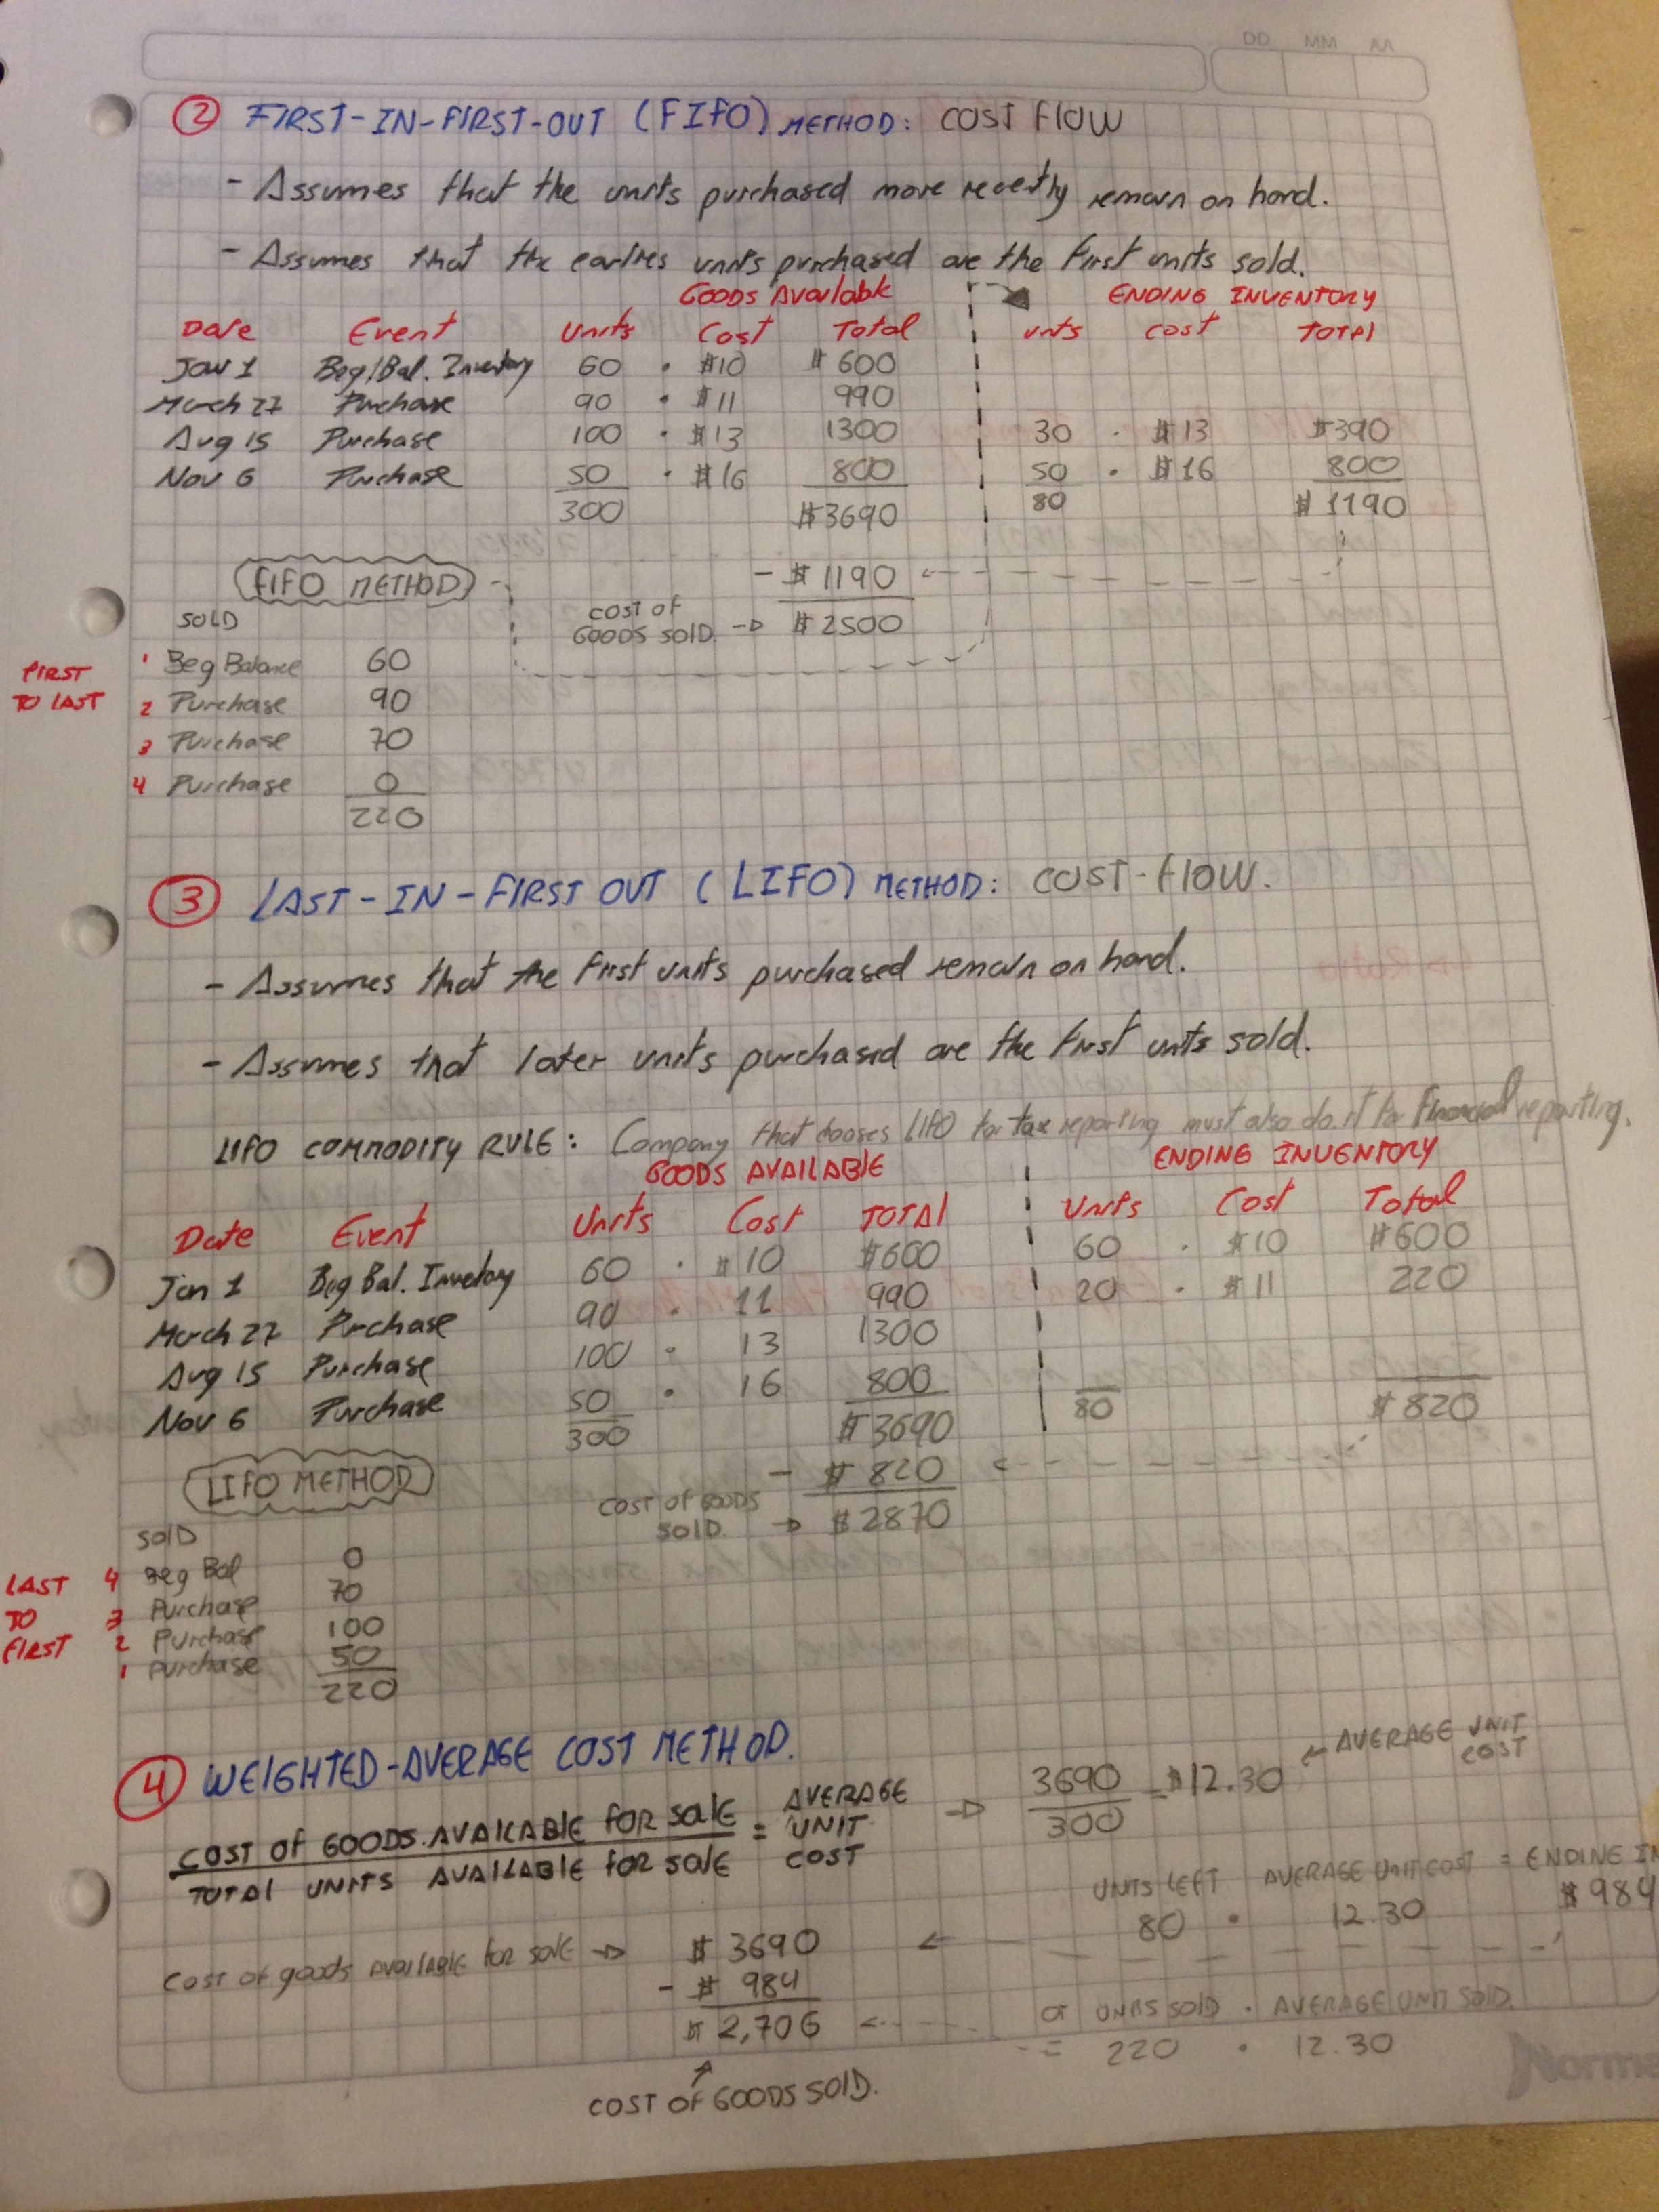 DD MM AA
2 FIRST-IN-FIRST-OUT (FIFO) METHOD: COST FLOW
- Assumes that the units purchased more recently remain on hand.
- Assumes that the earlies units purchased are the first units sold.
GOODS AVAIlAblE ENDING INVENTORY
Date Event Units Cost Total unts cost TOTAl
Jan 1 Beg/Bal. Inventory 60 · $10 $ 600
March 27 Purchase 90 · $11 990
Aug 15 Purchase 100 · $13 1300 30 · $13 $390
Nov 6 Purchase 50 · $16 800 50 · $16 800
300 $3690 80 $1190
FIFO METHOD - $1190
SOLD COST OF GOODS SOLD. → $2500
FIRST TO LAST
1 Beg Balance 60
2 Purchase 90
3 Purchase 70
4 Purchase 0
220
3 LAST-IN-FIRST OUT (LIFO) METHOD: COST-FLOW.
- Assumes that the first units purchased remain on hand.
- Assumes that later units purchased are the first units sold.
LIFO COMMODITY RULE: Company that chooses LIFO for tax reporting must also do it for financial reporting.
GOODS AVAILABLE ENDING INVENTORY
Date Event Units Cost TOTAl Units Cost Total
Jan 1 Beg Bal. Inventory 60 · $10 $600 60 · $10 $600
March 27 Purchase 90 · 11 990 20 · $11 220
Aug 15 Purchase 100 · 13 1300
Nov 6 Purchase 50 · 16 800
300 $3690 80 $820
LIFO METHOD - $820
COST OF GOODS SOLD. → $2870
SOLD
LAST TO FIRST
4 Beg Bal 0
3 Purchase 70
2 Purchase 100
1 Purchase 50
220
4 WEIGHTED-AVERAGE COST METHOD.
COST OF GOODS AVAILABLE FOR SALE = AVERAGE UNIT COST → 3690 = $12.30 ← AVERAGE UNIT COST
TOTAL UNITS AVAILABLE FOR SALE 300
UNITS LEFT AVERAGE UNIT COST = ENDING IN
80 · 12.30 $984
COST of goods AVAILABLE FOR SALE → $3690
- $984
$2,706
or UNITS SOLD · AVERAGE UNIT SOLD.
= 220 · 12.30
COST OF GOODS SOLD.
Norma